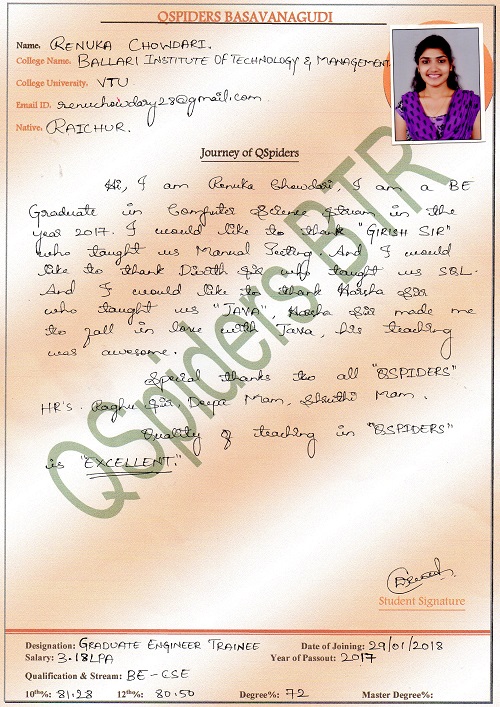 QSPIDERS BASAVANAGUDI
Name. RENUKA CHOWDARI.
College Name. BALLARI INSTITUTE OF TECHNOLOGY & MANAGEMENT
College University. VTU
Email ID. renuchowdary28@gmail.com
Native. RAICHUR.
Journey of QSpiders
Hi, I am Renuka Chowdari, I am a BE
Graduate in Computer Science Stream in the
year 2017. I would like to thank "GIRISH SIR"
who taught us Manual Testing. And I would
like to thank Dixith Sir who taught us SQL.
And I would like to thank Harsha Sir
who taught us "JAVA", Harsha Sir made me
to fall in love with Java, his teaching
was awesome.
Special thanks to all "QSPIDERS"
HR's Raghu Sir, Deepa Mam, Shruthi Mam.
Quality of teaching in "QSPIDERS"
is "EXCELLENT."
QSpiders BTR
Student Signature
Designation: GRADUATE ENGINEER TRAINEE Date of Joining: 29/01/2018
Salary: 3.18LPA Year of Passout: 2017
Qualification & Stream: BE-CSE
10th%: 81.28 12th%: 80.50 Degree%: 72 Master Degree%: